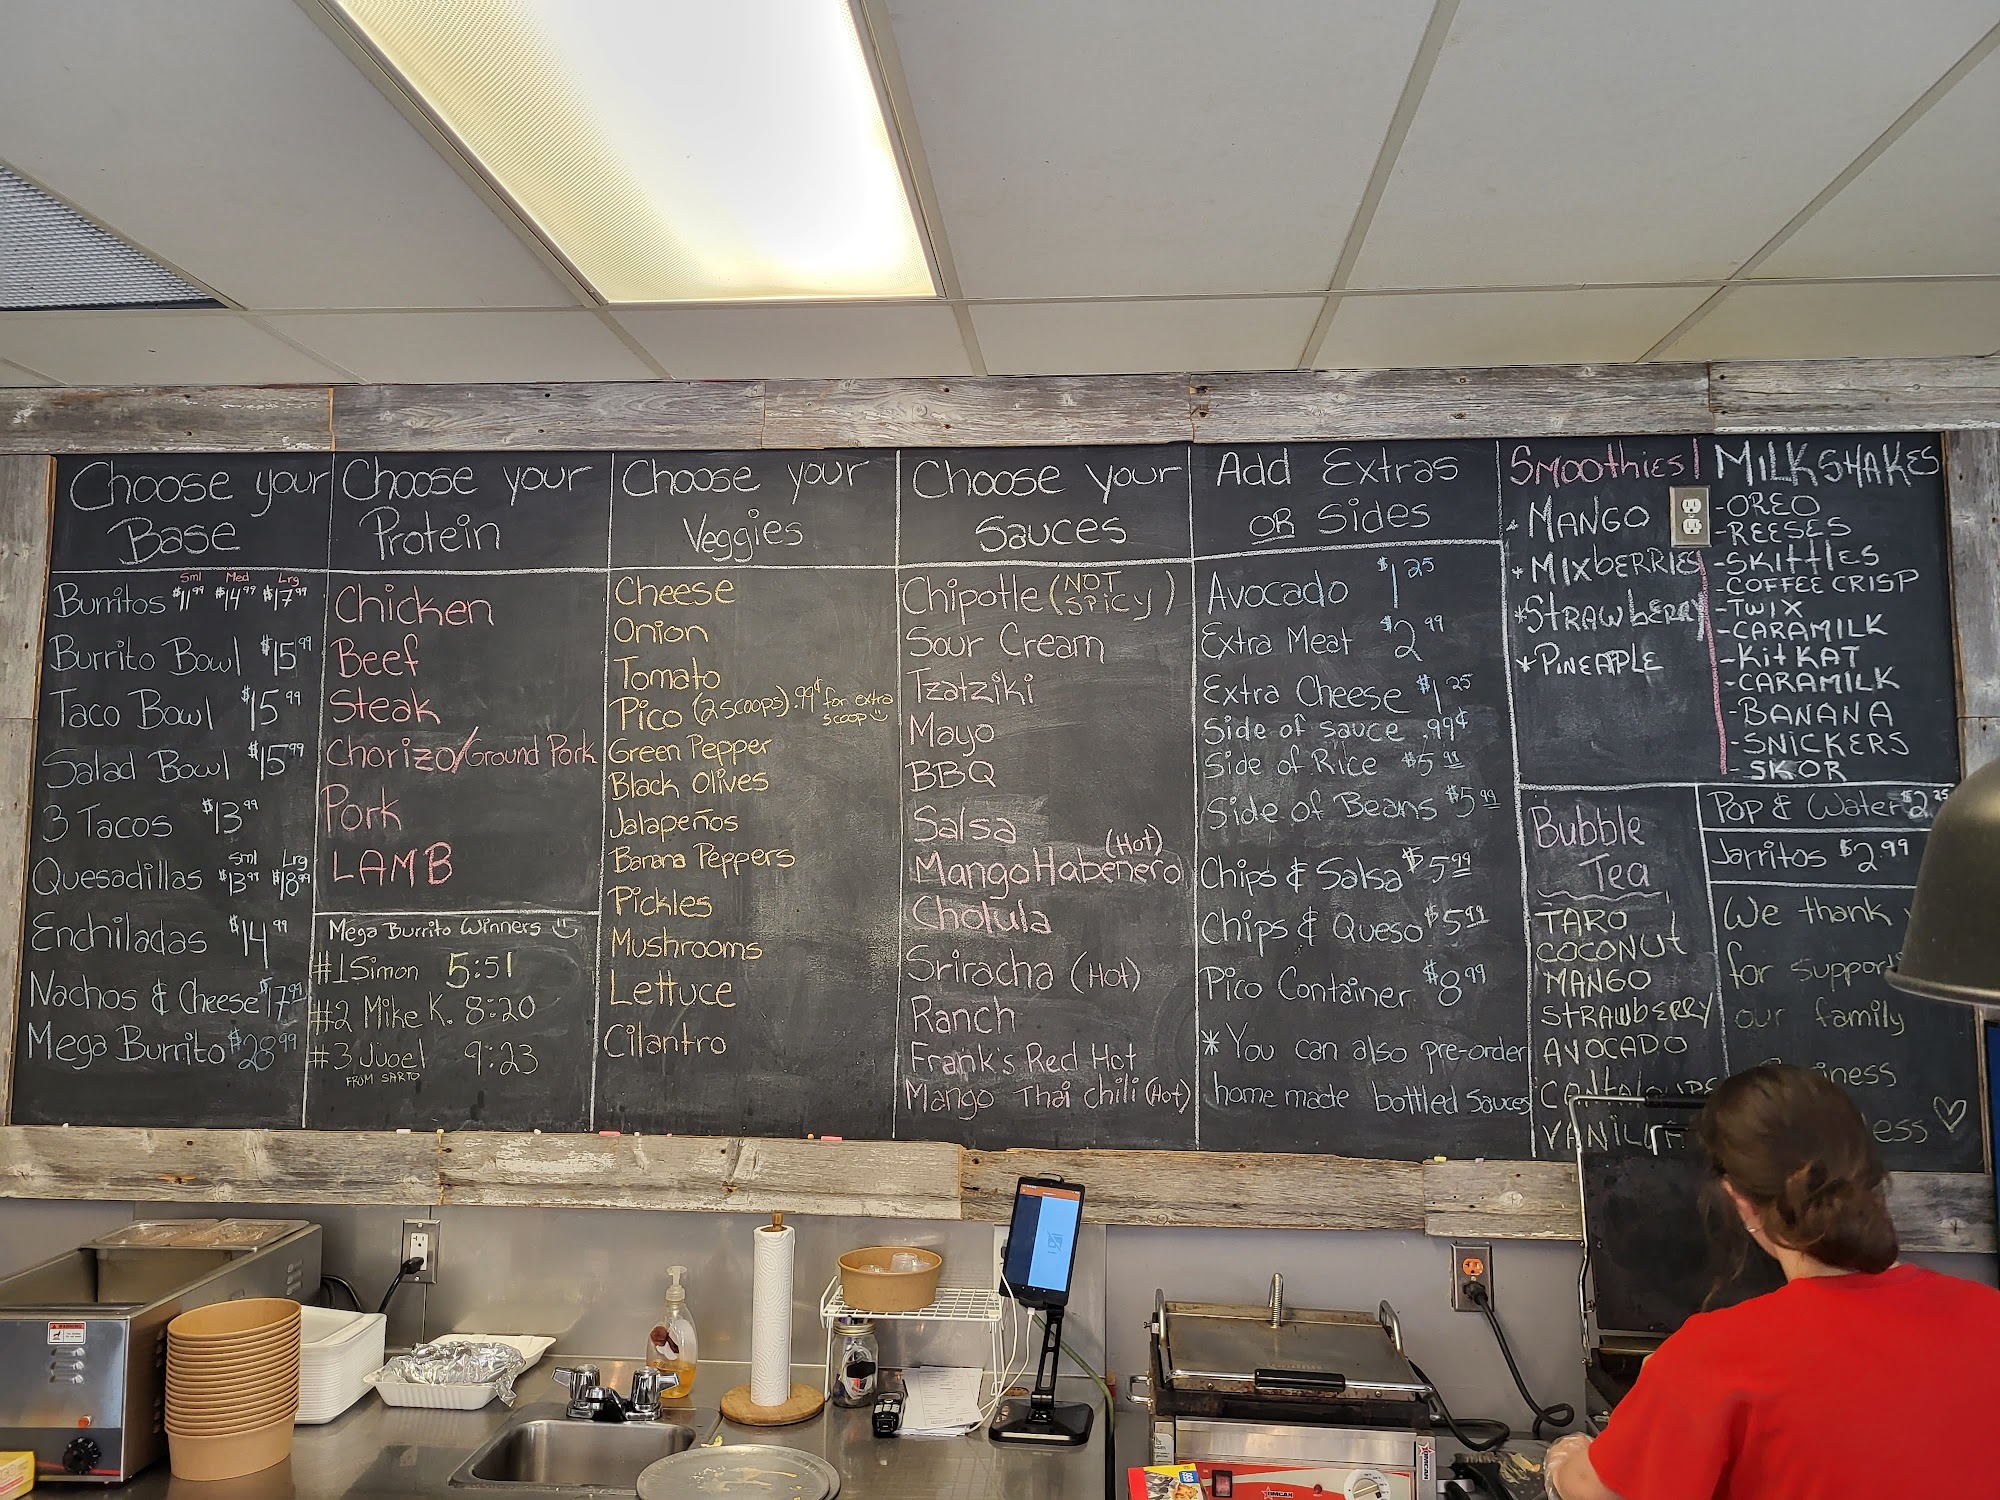 Choose your
Base
Sml Med Lrg
Burritos $11.99 $14.99 $17.99
Burrito Bowl $15.99
Taco Bowl $15.99
Salad Bowl $15.99
3 Tacos $13.99
Sml Lrg
Quesadillas $13.99 $18.99
Enchiladas $14.99
Nachos & Cheese $17.99
Mega Burrito $28.99
Choose your
Protein
Chicken
Beef
Steak
Chorizo/Ground Pork
Pork
LAMB
Mega Burrito Winners
#1 Simon 5:51
#2 Mike K. 8:20
#3 Juoel 9:23
FROM SARTO
Choose your
Veggies
Cheese
Onion
Tomato
Pico (2 scoops) .99¢ for extra
scoop
Green Pepper
Black Olives
Jalapeños
Banana Peppers
Pickles
Mushrooms
Lettuce
Cilantro
Choose your
Sauces
Chipotle (NOT
SPICY)
Sour Cream
Tzatziki
Mayo
BBQ
Salsa
(Hot)
Mango Habenero
Cholula
Sriracha (Hot)
Ranch
Frank's Red Hot
Mango Thai chili (Hot)
Add Extras
OR Sides
Avocado $1.25
Extra Meat $2.99
Extra Cheese $1.25
Side of sauce .99¢
Side of Rice $5.99
Side of Beans $5.99
Chips & Salsa $5.99
Chips & Queso $5.99
Pico Container $8.99
*You can also pre-order
home made bottled sauces
Smoothies
* MANGO
* MIXBERRIES
* STRAWBERRY
* PINEAPPLE
MILKSHAKES
- OREO
- REESES
- SKITTLES
- COFFEE CRISP
- TWIX
- CARAMILK
- KitKAT
- CARAMILK
- BANANA
- SNICKERS
- SKOR
Bubble
Tea
TARO
COCONUT
MANGO
STRAWBERRY
AVOCADO
VANILLA
Pop & Water $2.25
Jarritos $2.99
We thank
for
our family